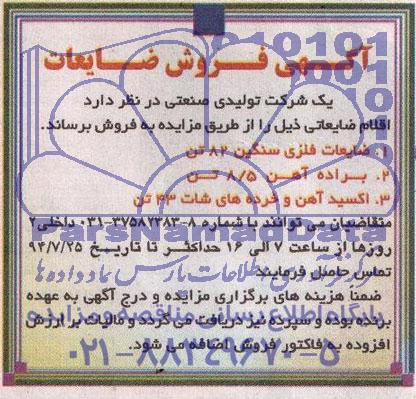 آگهی فروش ضایعات
یک شرکت تولیدی صنعتی در نظر دارد
اقلام ضایعاتی ذیل را از طریق مزایده به فروش برساند.
۱. ضایعات فلزی سنگین ۸۲ تن
۲. براده آهن ۸/۵ تن
۳. اکسید آهن و خرده های شات ۴۳ تن
متقاضیان می توانند با شماره ۸-۳۷۵۸۷۲۸۳-۰۳۱ داخلی ۲
روزها از ساعت ۷ الی ۱۶ حداکثر تا تاریخ ۹۴/۷/۲۵
تماس حاصل فرمایند
ضمنا هزینه های برگزاری مزایده و درج آگهی به عهده
برنده بوده و سپرده نیز دریافت می گردد و مالیات بر ارزش
افزوده به فاکتور فروش اضافه می شود.
ParsNamadData
مرکز فرآوری اطلاعات پارس نماد داده ها
پایگاه اطلاع رسانی مناقصه و مزایده
۰۲۱-۸۸۳۴۹۶۷۰-۵